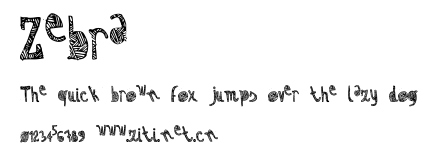 Zebra
The quick brown fox jumps over the lazy dog
0123456789 www.zitinet.cn